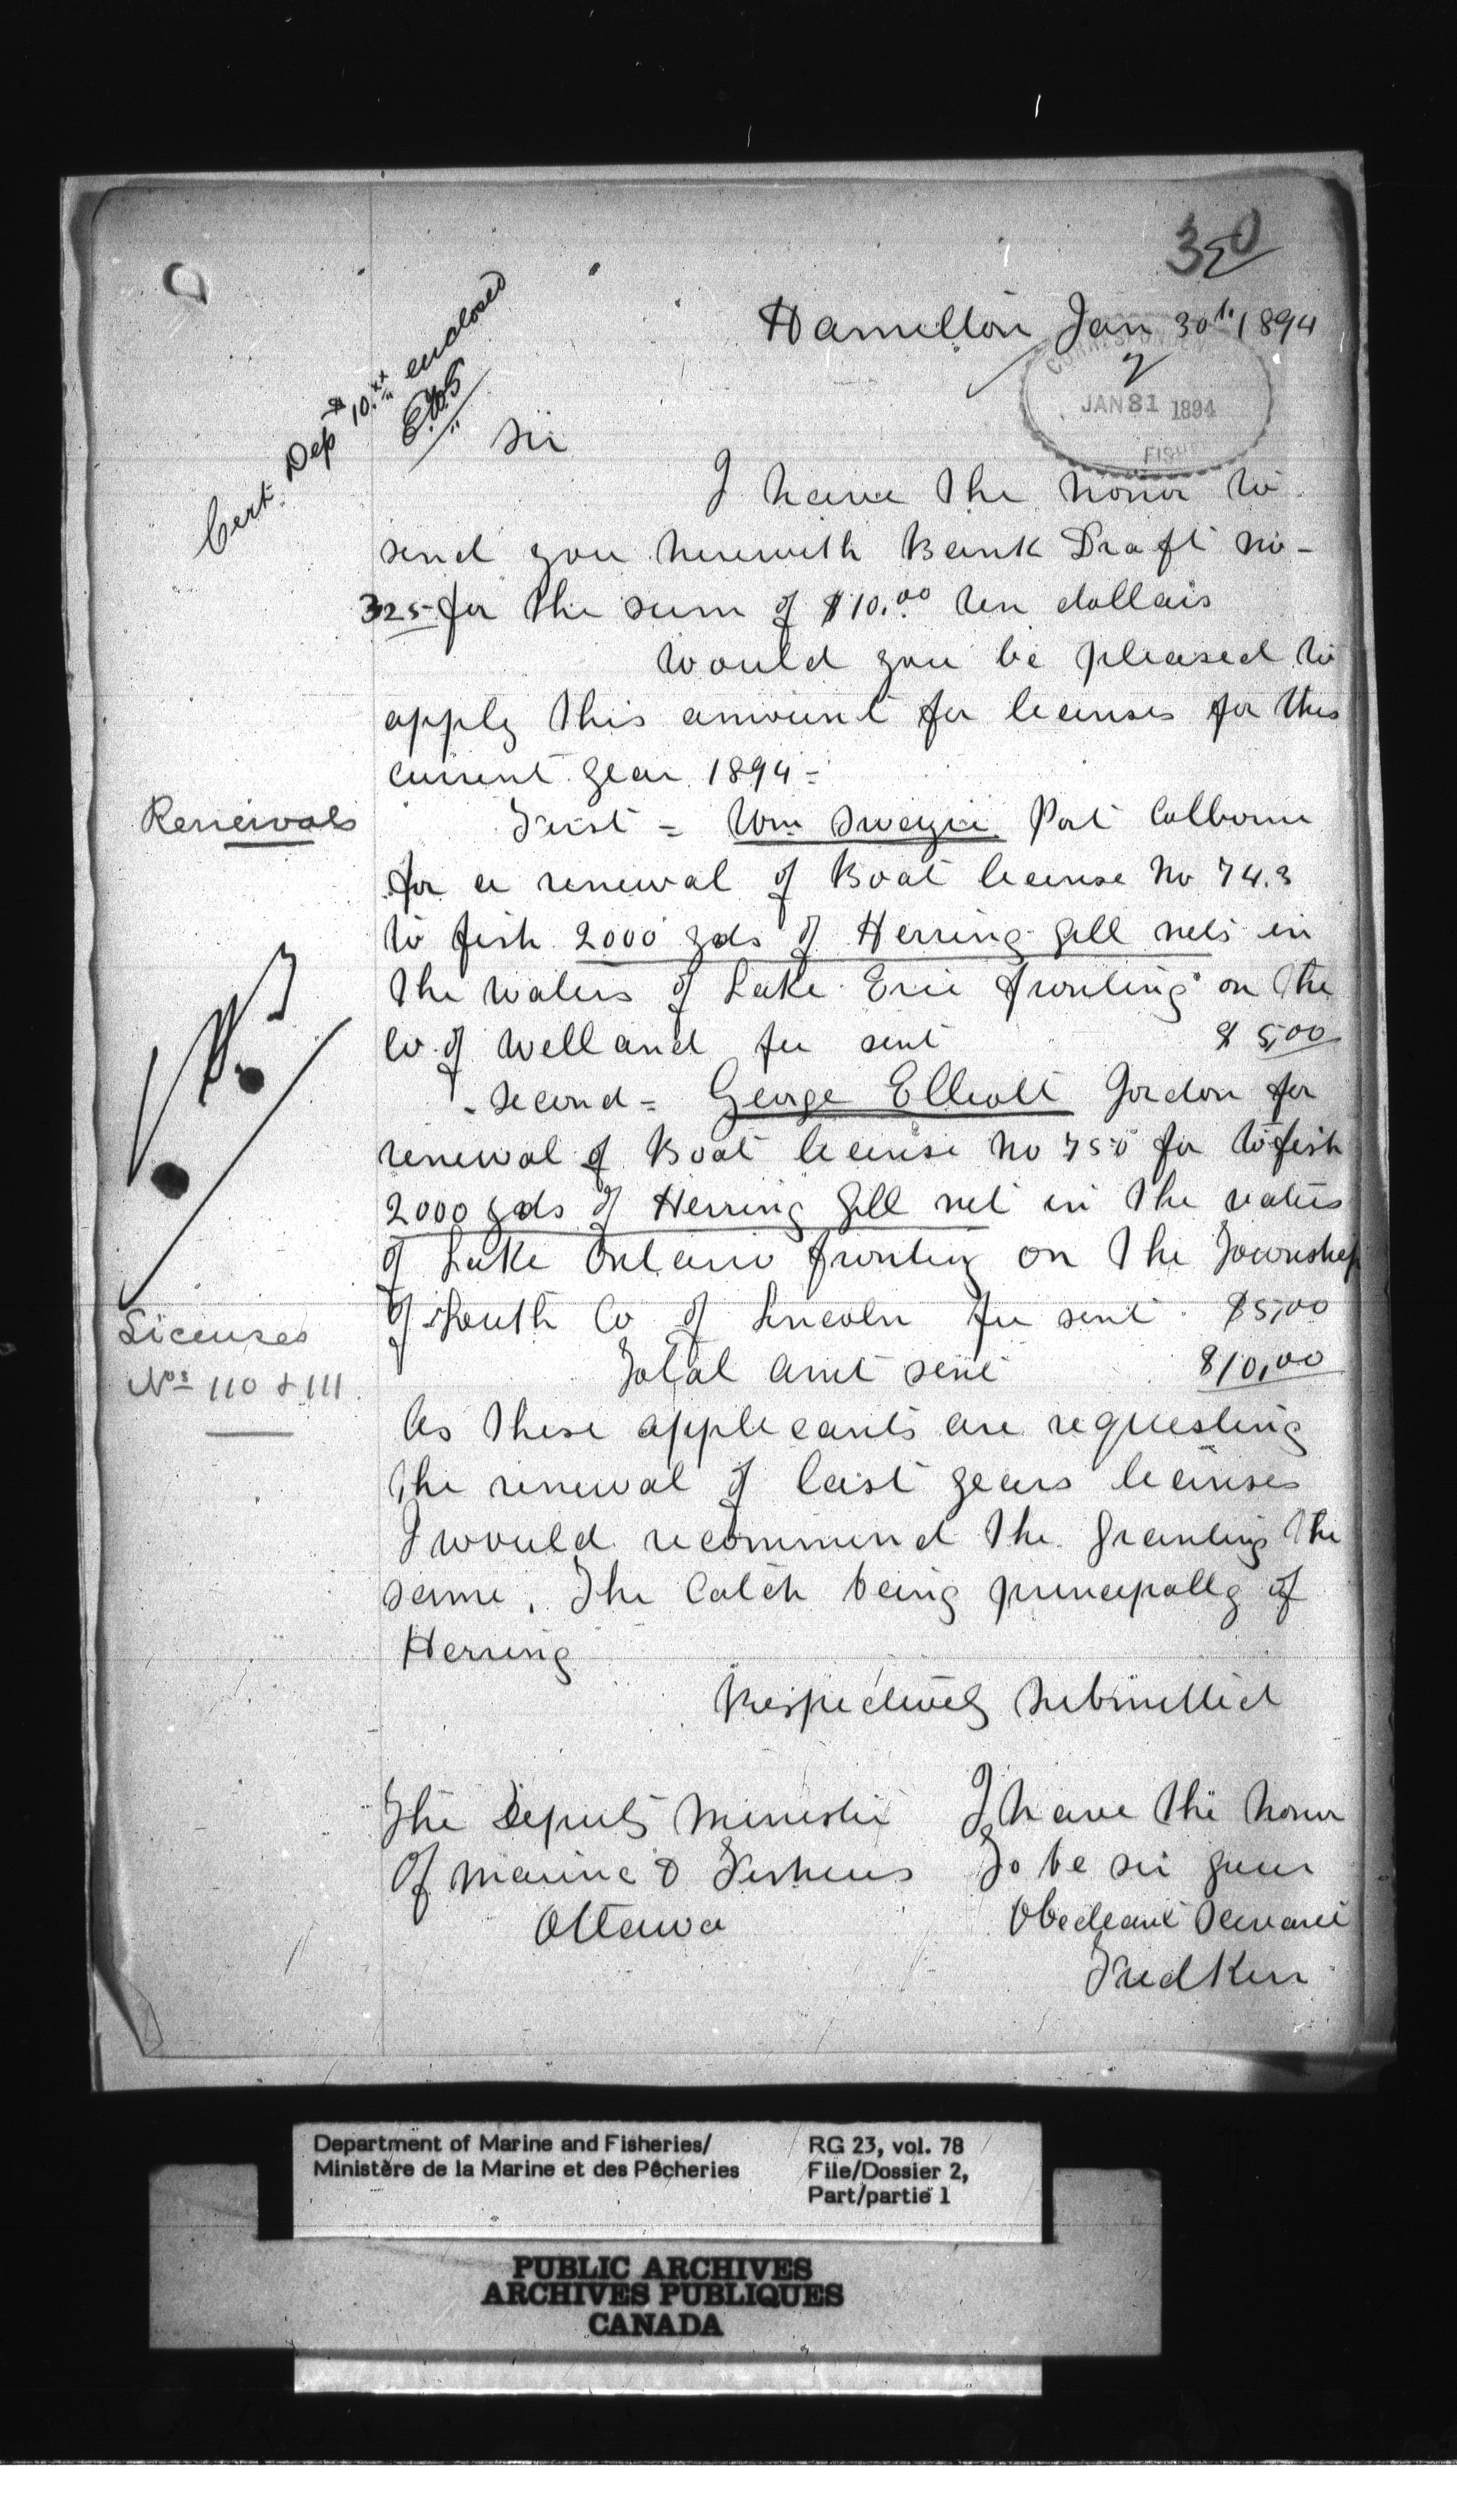 350
Hamilton Jan 30th 1894
CORRESPON
JAN 31 1894
FISHE
Cert. Dep $10.xx enclosed
Sir
I have the honor to
send you herewith Bank Draft no-
325- for the sum of $10.00 ten dollars
Would you be pleased to
apply this amount for licenses for this
current year 1894-
Renewals
First = Wm Swayzie Port Colborne
for a renewal of Boat license No 743
to fish 2000 yds of Herring gill nets in
the waters of Lake Erie fronting on the
Co. of Welland fee sent $5,00
- Second = George Elliott Jordon for
renewal of Boat license no 750 for to fish
2000 yds of Herring Gill net in the waters
of Lake Ontario fronting on the Township
of Louth Co of Lincoln fee sent $5,00
Total amt sent $10,00
Licenses
Nos 110 & 111.
As these applicants are requesting
the renewal of last years licenses
I would recommend the granting the
same. The Catch being principally of
Herring
Respectively Submitted
The Deputy Minister
Of Marine & Fisheries
Ottawa
I have the honor
To be sir your
Obedeant Servant
Fred Kerr
Department of Marine and Fisheries/
Ministère de la Marine et des Pêcheries
RG 23, vol. 78
File/Dossier 2,
Part/partie 1
PUBLIC ARCHIVES
ARCHIVES PUBLIQUES
CANADA